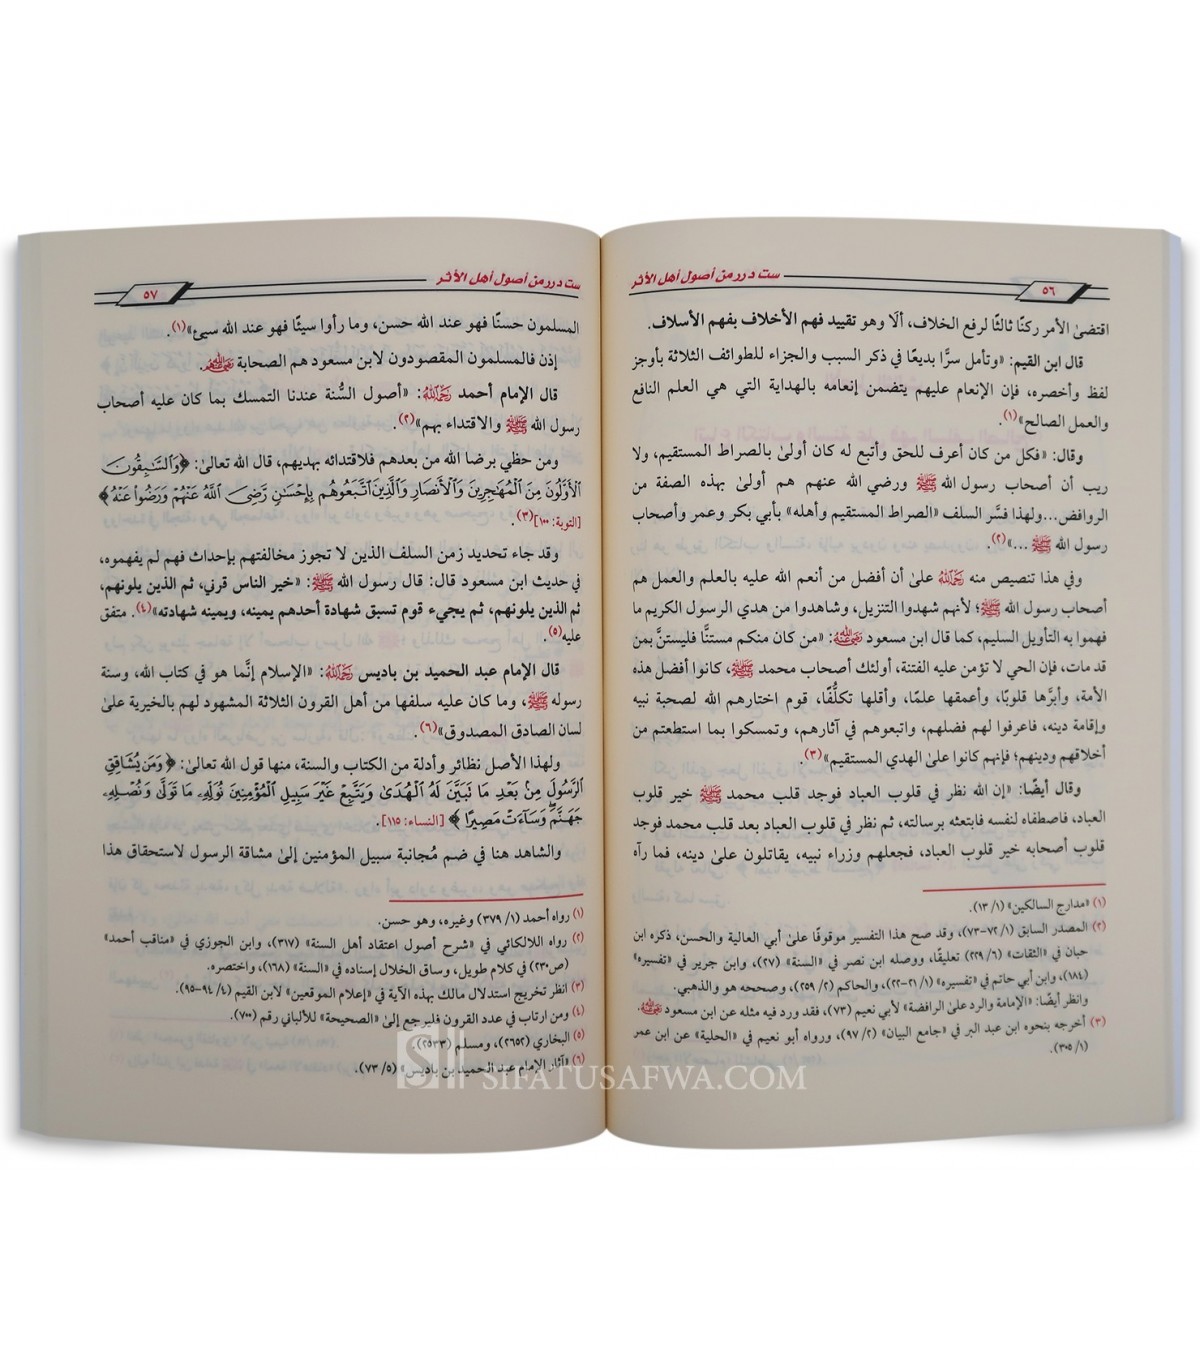 ست درر من أصول أهل الأثر
٥٦
اقتضىٰ الأمر ركنًا ثالثًا لرفع الخلاف، ألا وهو تقييد فهم الأخلاف بفهم الأسلاف.
قال ابن القيم: «وتأمل سرًّا بديعًا في ذكر السبب والجزاء للطوائف الثلاثة بأوجز
لفظ وأخصره، فإن الإنعام عليهم يتضمن إنعامه بالهداية التي هي العلم النافع
والعمل الصالح»(١).
وقال: «فكل من كان أعرف للحق وأتبع له كان أولىٰ بالصراط المستقيم، ولا
ريب أن أصحاب رسول الله ﷺ ورضي الله عنهم هم أولىٰ بهذه الصفة من
الروافض...ولهذا فسَّر السلف «الصراط المستقيم وأهله» بأبي بكر وعمر وأصحاب
رسول الله ﷺ ...»(٢).
وفي هذا تنصيص منه رحمه الله علىٰ أن أفضل من أنعم الله عليه بالعلم والعمل هم
أصحاب رسول الله ﷺ؛ لأنهم شهدوا التنزيل، وشاهدوا من هدي الرسول الكريم ما
فهموا به التأويل السليم، كما قال ابن مسعود رضي الله عنه: «من كان منكم مستنًّا فليستنَّ بمن
قد مات، فإن الحي لا تؤمن عليه الفتنة، أولئك أصحاب محمد ﷺ، كانوا أفضل هذه
الأمة، وأبرَّها قلوبًا، وأعمقها علمًا، وأقلها تكلُّفًا، قوم اختارهم الله لصحبة نبيه
وإقامة دينه، فاعرفوا لهم فضلهم، واتبعوهم في آثارهم، وتمسكوا بما استطعتم من
أخلاقهم ودينهم؛ فإنهم كانوا علىٰ الهدي المستقيم»(٣).
وقال أيضًا: «إن الله نظر في قلوب العباد فوجد قلب محمد ﷺ خير قلوب
العباد، فاصطفاه لنفسه فابتعثه برسالته، ثم نظر في قلوب العباد بعد قلب محمد فوجد
قلوب أصحابه خير قلوب العباد، فجعلهم وزراء نبيه، يقاتلون علىٰ دينه، فما رآه
(١) «مدارج السالكين» (١/ ١٣).
(٢) المصدر السابق (١/ ٧٢-٧٣)، وقد صح هذا التفسير موقوفًا علىٰ أبي العالية والحسن، ذكره ابن
حبان في «الثقات» (٦/ ٢٢٩) تعليقًا، ووصله ابن نصر في «السنة» (٢٧)، وابن جرير في «تفسيره»
(١٨٤)، وابن أبي حاتم في «تفسيره» (١/ ٢١-٢٢)، والحاكم (٢/ ٢٥٩)، وصححه هو والذهبي.
وانظر أيضًا: «الإمامة والرد علىٰ الرافضة» لأبي نعيم (٧٣)، فقد ورد فيه مثله عن ابن مسعود رضي الله عنه.
(٣) أخرجه بنحوه ابن عبد البر في «جامع البيان» (٢/ ٩٧)، ورواه أبو نعيم في «الحلية» عن ابن عمر
(١/ ٣٠٥).
ست درر من أصول أهل الأثر
٥٧
المسلمون حسنًا فهو عند الله حسن، وما رأوا سيئًا فهو عند الله سيئ»(١).
إذن فالمسلمون المقصودون لابن مسعود هم الصحابة رضي الله عنهم.
قال الإمام أحمد رحمه الله: «أصول السُّنة عندنا التمسك بما كان عليه أصحاب
رسول الله ﷺ والاقتداء بهم»(٢).
ومن حظي برضا الله من بعدهم فلاقتدائه بهديهم، قال الله تعالىٰ: ﴿وَٱلسَّٰبِقُونَ
ٱلۡأَوَّلُونَ مِنَ ٱلۡمُهَٰجِرِينَ وَٱلۡأَنصَارِ وَٱلَّذِينَ ٱتَّبَعُوهُم بِإِحۡسَٰنٖ رَّضِيَ ٱللَّهُ عَنۡهُمۡ وَرَضُواْ عَنۡهُ﴾
[التوبة: ١٠٠](٣).
وقد جاء تحديد زمن السلف الذين لا تجوز مخالفتهم بإحداث فهم لم يفهموه،
في حديث ابن مسعود قال: قال رسول الله ﷺ: «خير الناس قرني، ثم الذين يلونهم،
ثم الذين يلونهم، ثم يجيء قوم تسبق شهادة أحدهم يمينه، ويمينه شهادته»(٤). متفق
عليه(٥).
قال الإمام عبد الحميد بن باديس رحمه الله: «الإسلام إنَّما هو في كتاب الله، وسنة
رسوله ﷺ، وما كان عليه سلفها من أهل القرون الثلاثة المشهود لهم بالخيرية علىٰ
لسان الصادق المصدوق»(٦).
ولهذا الأصل نظائر وأدلة من الكتاب والسنة، منها قول الله تعالىٰ: ﴿وَمَن يُشَاقِقِ
ٱلرَّسُولَ مِنۢ بَعۡدِ مَا تَبَيَّنَ لَهُ ٱلۡهُدَىٰ وَيَتَّبِعۡ غَيۡرَ سَبِيلِ ٱلۡمُؤۡمِنِينَ نُوَلِّهِۦ مَا تَوَلَّىٰ وَنُصۡلِهِۦ
جَهَنَّمَۖ وَسَآءَتۡ مَصِيرًا﴾ [النساء: ١١٥].
والشاهد هنا في ضم مُجانبة سبيل المؤمنين إلىٰ مشاقة الرسول لاستحقاق هذا
(١) رواه أحمد (١/ ٣٧٩) وغيره، وهو حسن.
(٢) رواه اللالكائي في «شرح أصول اعتقاد أهل السنة» (٣١٧)، وابن الجوزي في «مناقب أحمد»
(ص٢٣٠) في كلام طويل، وساق الخلال إسناده في «السنة» (١٦٨)، واختصره.
(٣) انظر تخريج استدلال مالك بهذه الآية في «إعلام الموقعين» لابن القيم (٤/ ٩٤-٩٥).
(٤) ومن ارتاب في عدد القرون فليرجع إلىٰ «الصحيحة» للألباني رقم (٧٠٠).
(٥) البخاري (٢٦٥٢)، ومسلم (٢٥٣٣).
(٦) «آثار الإمام عبد الحميد بن باديس» (٥/ ٧٣).
SIFATUSAFWA.COM